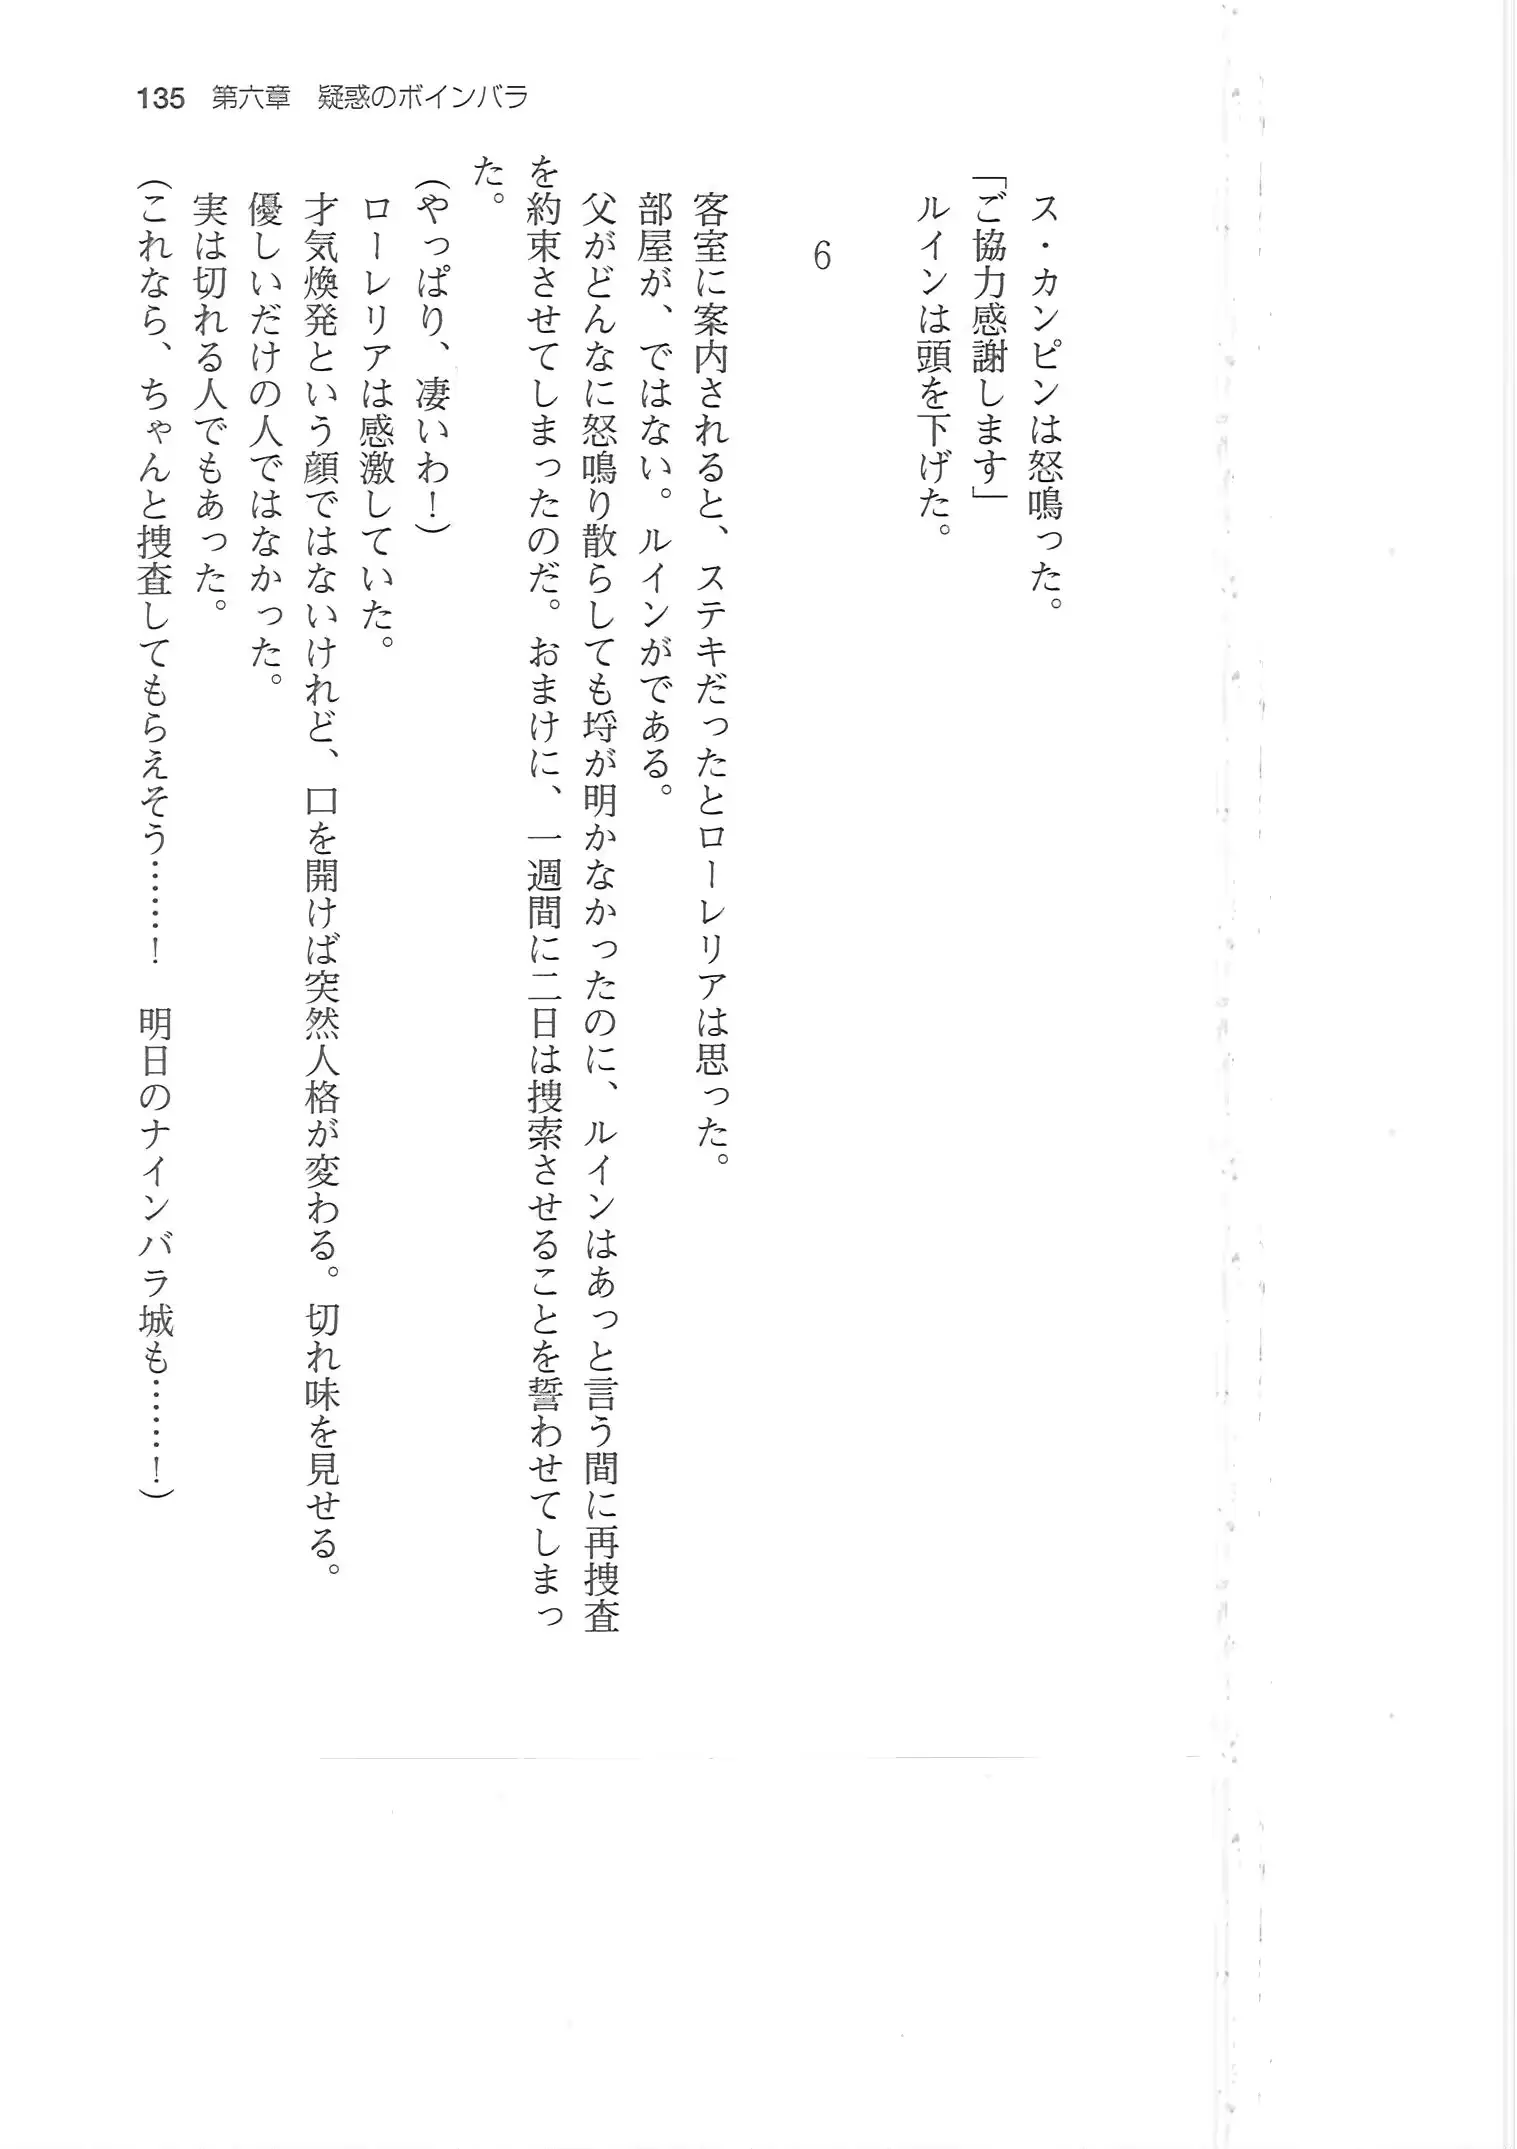 135 第六章 疑惑のボインバラ
ス・カンピンは怒鳴った。
「ご協力感謝します」
ルインは頭を下げた。
6
客室に案内されると、ステキだったとローレリアは思った。
部屋が、ではない。ルインがである。
父がどんなに怒鳴り散らしても埒が明かなかったのに、ルインはあっと言う間に再捜査
を約束させてしまったのだ。おまけに、一週間に二日は捜索させることを誓わせてしまっ
た。
(やっぱり、凄いわ!)
ローレリアは感激していた。
才気煥発という顔ではないけれど、口を開けば突然人格が変わる。切れ味を見せる。
優しいだけの人ではなかった。
実は切れる人でもあった。
(これなら、ちゃんと捜査してもらえそう……! 明日のナインバラ城も……!)